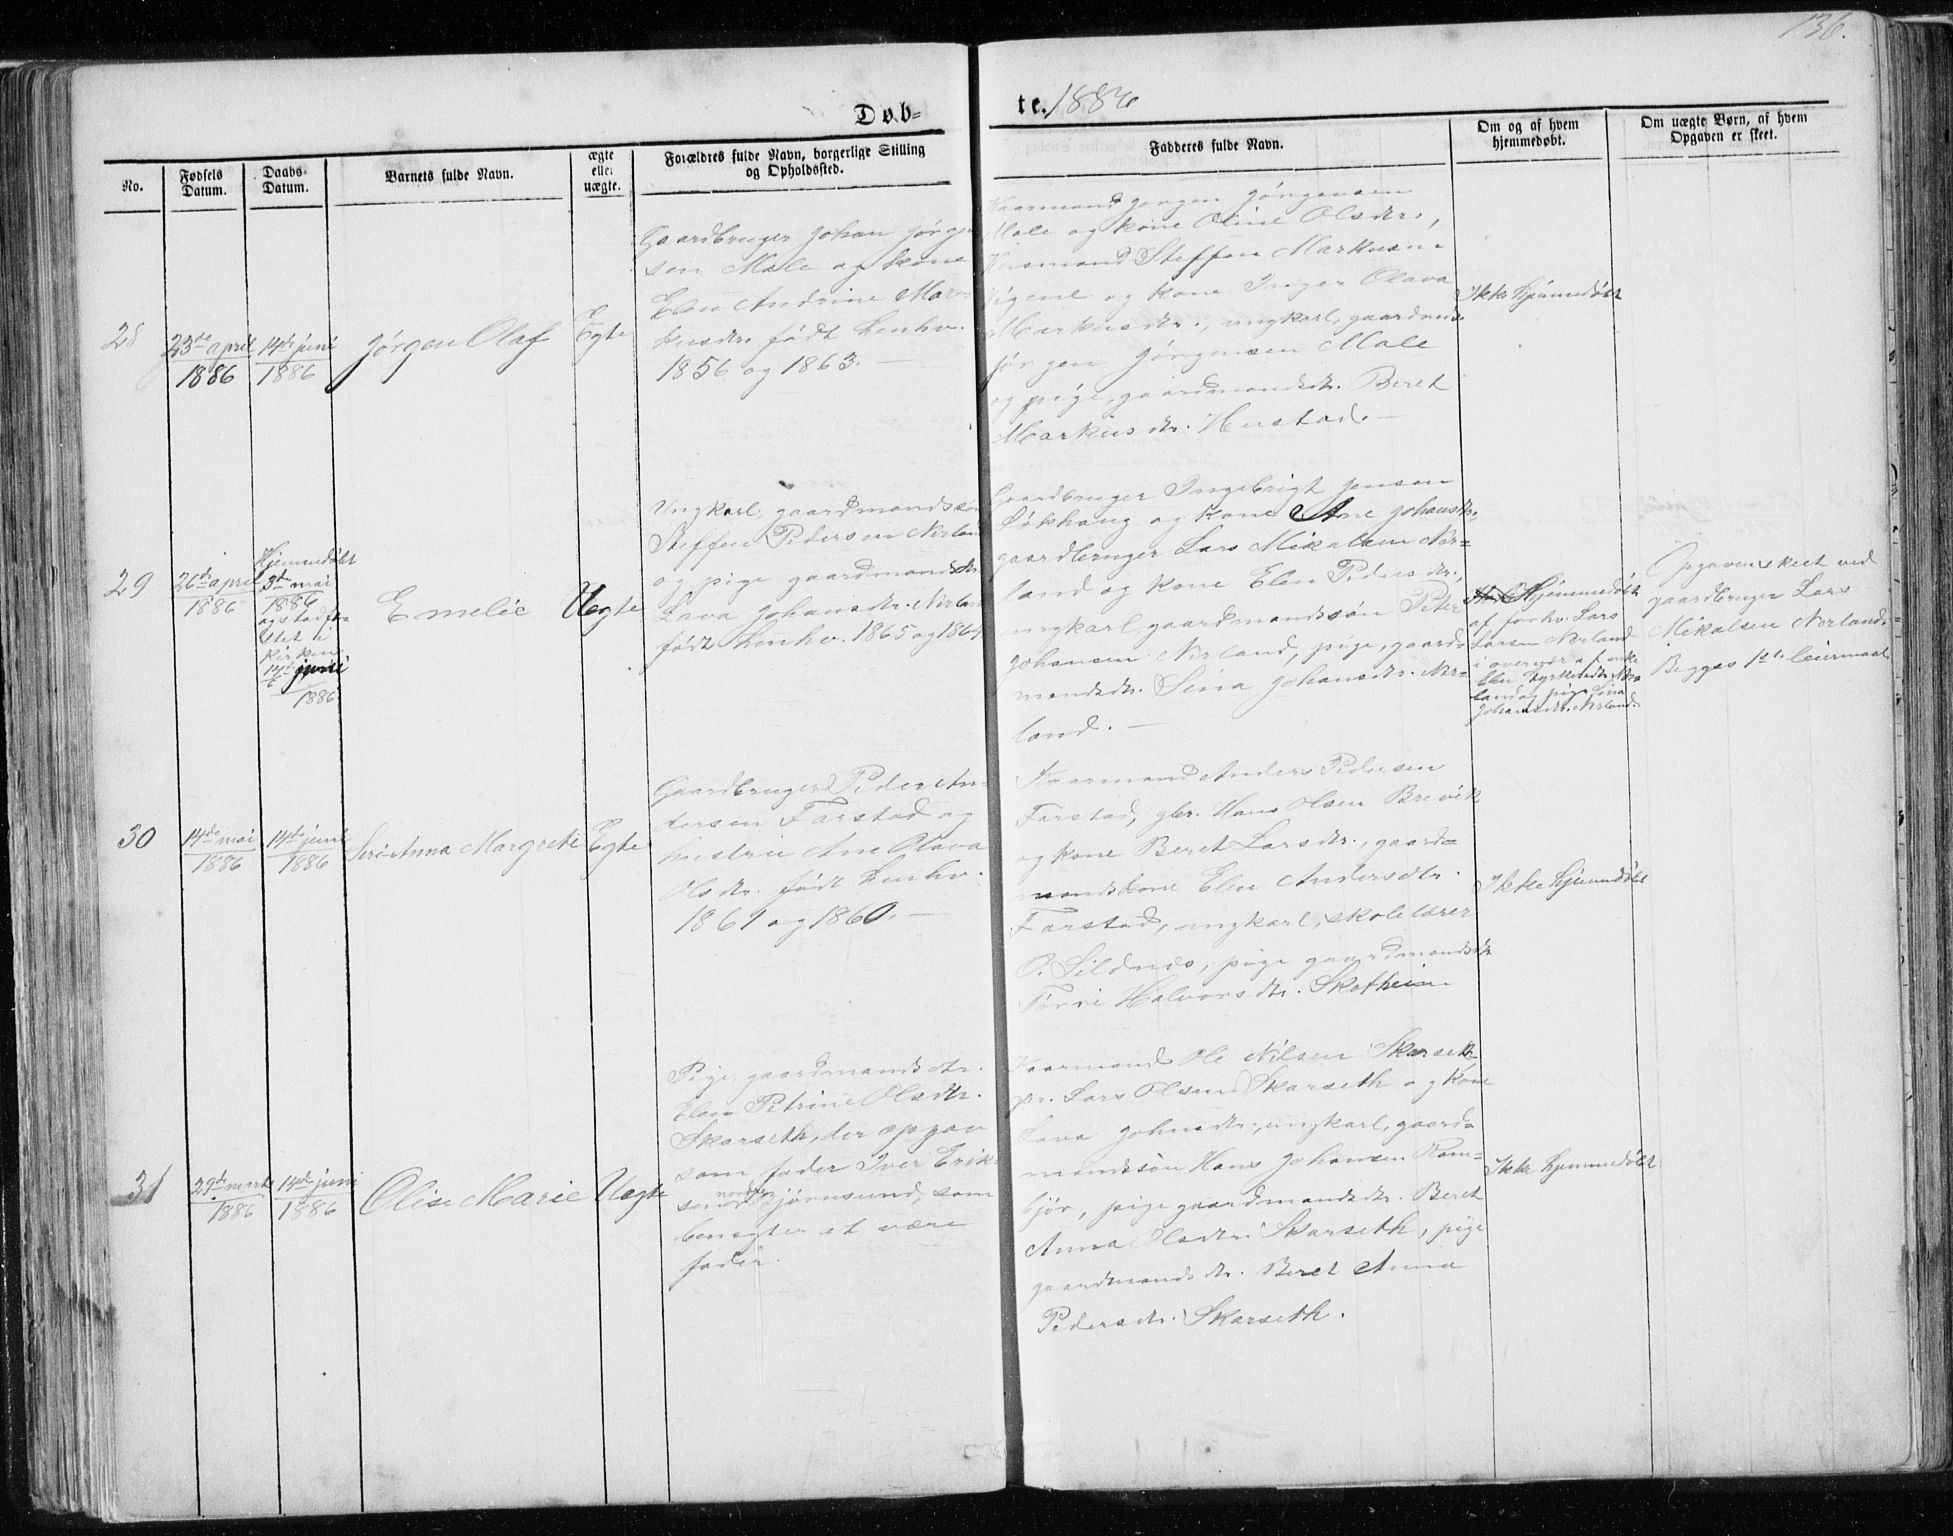 136.
Døb=
te. 1886
No.
Fødsels
Datum.
Daabs-
Datum.
Barnets fulde Navn.
ægte
eller
uægte.
Forældres fulde Navn, borgerlige Stilling
og Opholdssted.
Faddernes fulde Navn.
Om og af hvem
hjemmedøbt.
Om uægte Børn, af hvem
Opgaven er skeet.
28
23de april
1886
14de juni
1886
Jørgen Olaf
Egte
Gaardbruger Johan Jørgen-
sen Male og kone
Elen Andrine Mar-
kusdtr. født henhv.
1856 og 1863.
Kaarmand Jørgen Jørgensen
Male og kone Oline Olsdtr.,
Husmand Steffen Markusen
og kone Inger Olava
Markusdtr., ungkarl, gaardmd.
Jørgen Jørgensen Male
og pige, gaardmandsdtr. Beret
Markusdtr. Hustad. —
Ikke hjemmedøbt
29
26de april
1886
Hjemmedøbt
3de mai
1886
og stadfæ-
stet i
kirken
14de juni
1886
Emelie
Uegte
Ungkarl, gaardmandssøn
Steffen Pederson Nerland
og pige gaardmandsdtr.
Lava Johansdtr. Nerland
født henhv. 1865 og 1864
Gaardbruger Ingebrigt Jonsen
Løkhaug og kone Ane Johansdtr.,
gaardbruger Lars Mikalsen Ner=
land og kone Elen Pedersdtr.,
ungkarl, gaardmandssøn Peter
Johansen Nerland, pige, gaard-
mandsdtr. Sina Johansdtr. Ner=
land. —
Hjemmedøbt
af forhv. Lars
Larsen Nerland
i overvær af enke
Elen Ner-
land og pige Sina
Johansdtr. Nerland.
Opgaven skeet ved
gaardbruger Lars
Mikalsen Nerland.
Begges 1ste leiermaal
30
14de mai
1886
14de juni
1886
Anna Margrete
Egte
Gaardbruger Peder An-
dersen Farstad og
hustru Ane Olava
Olsdtr. født henhv.
1861 og 1860. —
Kaarmand Anders Pedersen
Farstad, gbr. Hans Olsen Brevik
og kone Beret Larsdtr., gaard=
mandskone Elen Andersdtr.
Farstad, ungkarl, skolelærer
O. Sildnes, pige gaardmandsdtr.
Halvorsdtr. Skotheim
Ikke hjemmedøbt
31
29de marts
1886
14de juni
1886
Olise Marie
Uegte
Pige, gaardmandsdtr.
Elen Petrine Olsdtr.
Skarseth, der opgav
som fader Iver Erik-
sen nordre Bjørnsund, som
benegter at være
fader.
Kaarmand Ole Nilsen Skarseth
gbr. Lars Olsen Skarseth og kone
Lava Johnsdtr., ungkarl, gaard=
mandssøn Hans Johansen Ram=
bjør, pige gaardmandsdtr. Beret
Anna Olsdtr. Skarseth, pige
gaardmandsdtr. Beret Anna
Pedersdtr. Skarseth.
Ikke hjemmedøbt